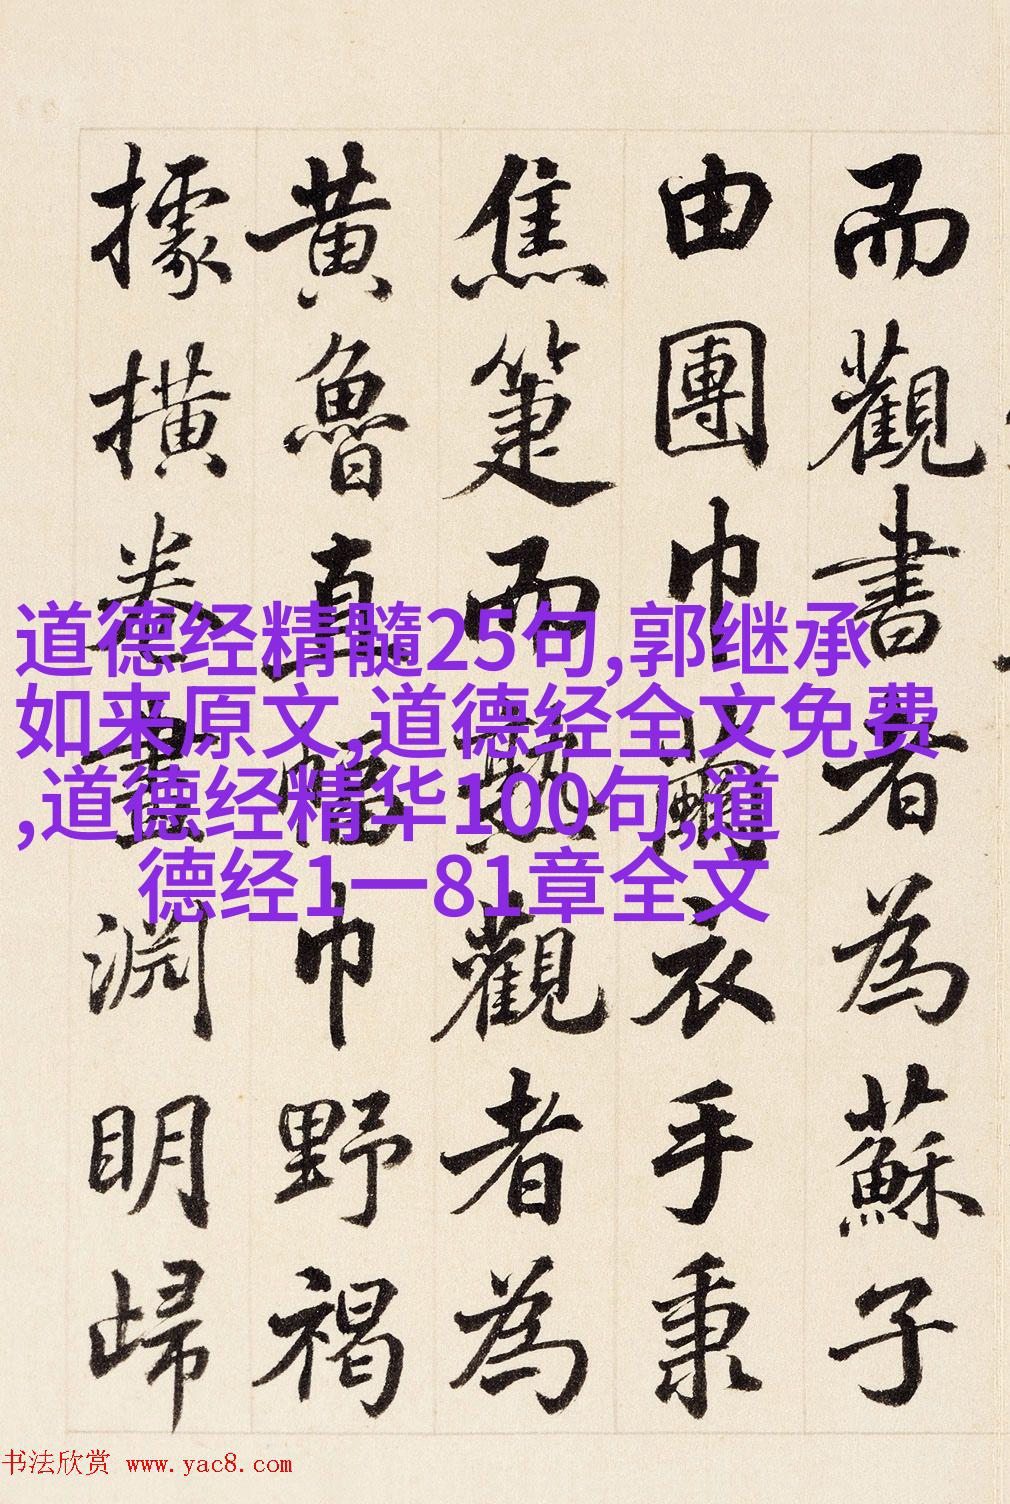 而觀書者為蘇子
由團巾繭衣手秉
焦箑而熟觀者為
黃魯直幅巾野褐
據橫卷畫淵明歸
道德经精髓25句,郭继承
如来原文,道德经全文免费
,道德经精华100句,道
德经1一81章全文
书法欣赏 www.yac8.com